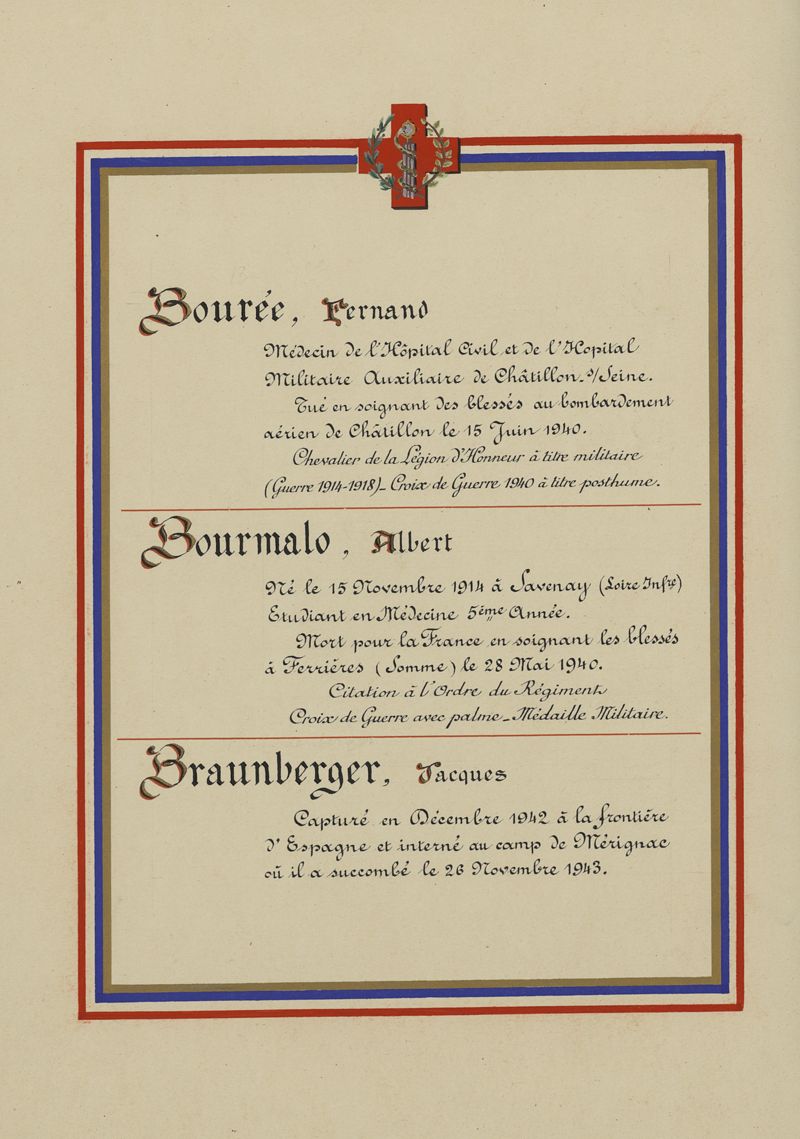 Bourée, Fernand
Médecin de l'Hôpital Civil et de l'Hopital
Militaire Auxiliaire de Châtillon-s/Seine.
Tué en soignant des blessés au bombardement
aérien de Châtillon le 15 Juin 1940.
Chevalier de la Légion d'Honneur à titre militaire
(Guerre 1914-1918)_ Croix de Guerre 1940 à titre posthume.
Bourmalo, Albert
Né le 15 Novembre 1914 à Savenay (Loire Infre)
Etudiant en Médecine 5ème Année.
Mort pour la France en soignant les blessés
à Ferrières (Somme) le 28 Mai 1940.
Citation à l'Ordre du Régiment
Croix de Guerre avec palme_ Médaille Militaire.
Braunberger, Jacques
Capturé en Décembre 1942 à la frontière
d'Espagne et interné au camp de Mérignac
où il a succombé le 26 Novembre 1943.